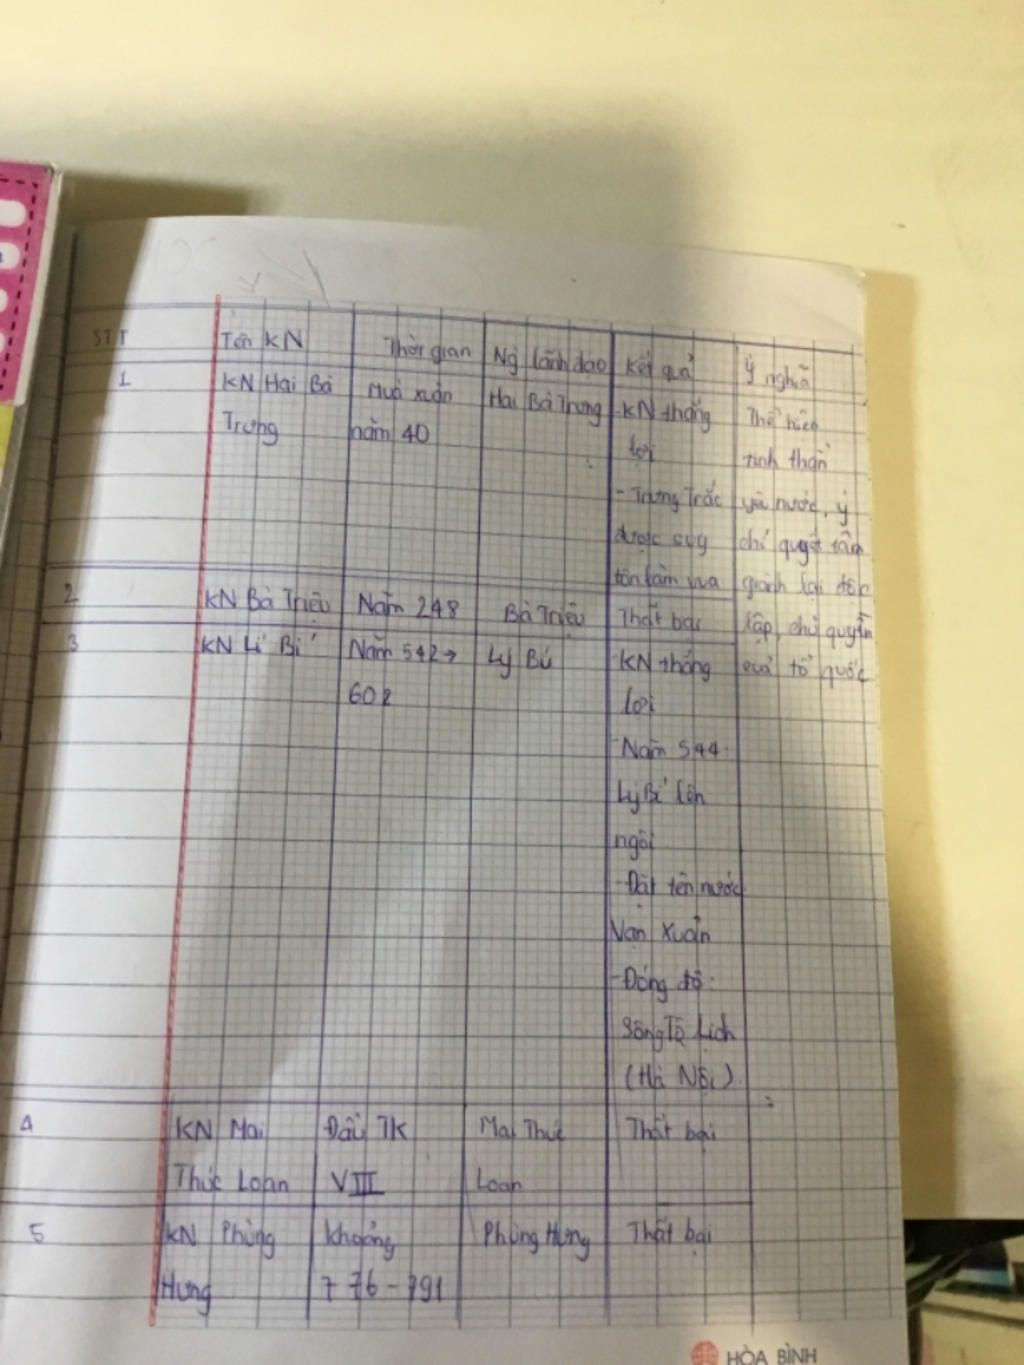 STT Tên KN Thời gian Ng lãnh đạo Kết quả Ý nghĩa
1 KN Hai Bà Mùa xuân Hai Bà Trưng -KN thắng Thể hiện
Trưng năm 40 lợi tinh thần
- Trưng Trắc yêu nước, ý
được suy chí quyết tâm
tôn làm vua giành lại độc
2 KN Bà Triệu Năm 248 Bà Triệu Thất bại lập, chủ quyền
3 KN Lí Bí Năm 542→ Lý Bí -KN thắng của tổ quốc
602 lợi
-Năm 544
Lý Bí lên
ngôi
-Đặt tên nước
Vạn Xuân
-Đóng đô:
Sông Tô Lịch
(Hà Nội)
4 KN Mai Đầu TK Mai Thúc Thất bại
Thúc Loan VIII Loan
5 KN Phùng Khoảng Phùng Hưng Thất bại
Hưng 776-791
HÒA BÌNH